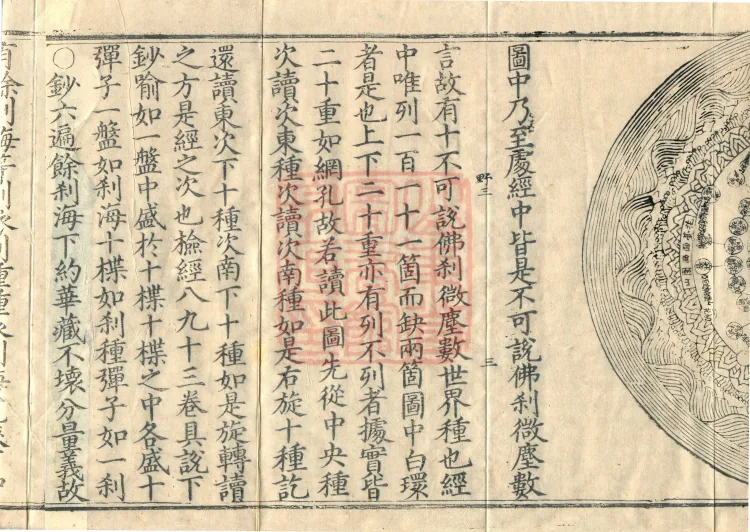 圖中乃至處經中皆是不可說佛刹微塵數
野三
三
言故有十不可說佛刹微塵數世界種也經
中唯列一百一十一箇而缺兩箇圖中白環
者是也上下二十重亦有列不列者據實皆
二十重如網孔故若讀此圖先從中央種
次讀次東種次讀次南種如是右旋十種訖
還讀東次下十種次南下十種如是旋轉讀
之方是經之次也檢經八九十三卷具說下
鈔喻如一盤中盛於十楪十楪之中各盛十
彈子一盤如刹海十楪如刹種彈子如一刹
○鈔六遍餘刹海下約華藏不壞分量義故